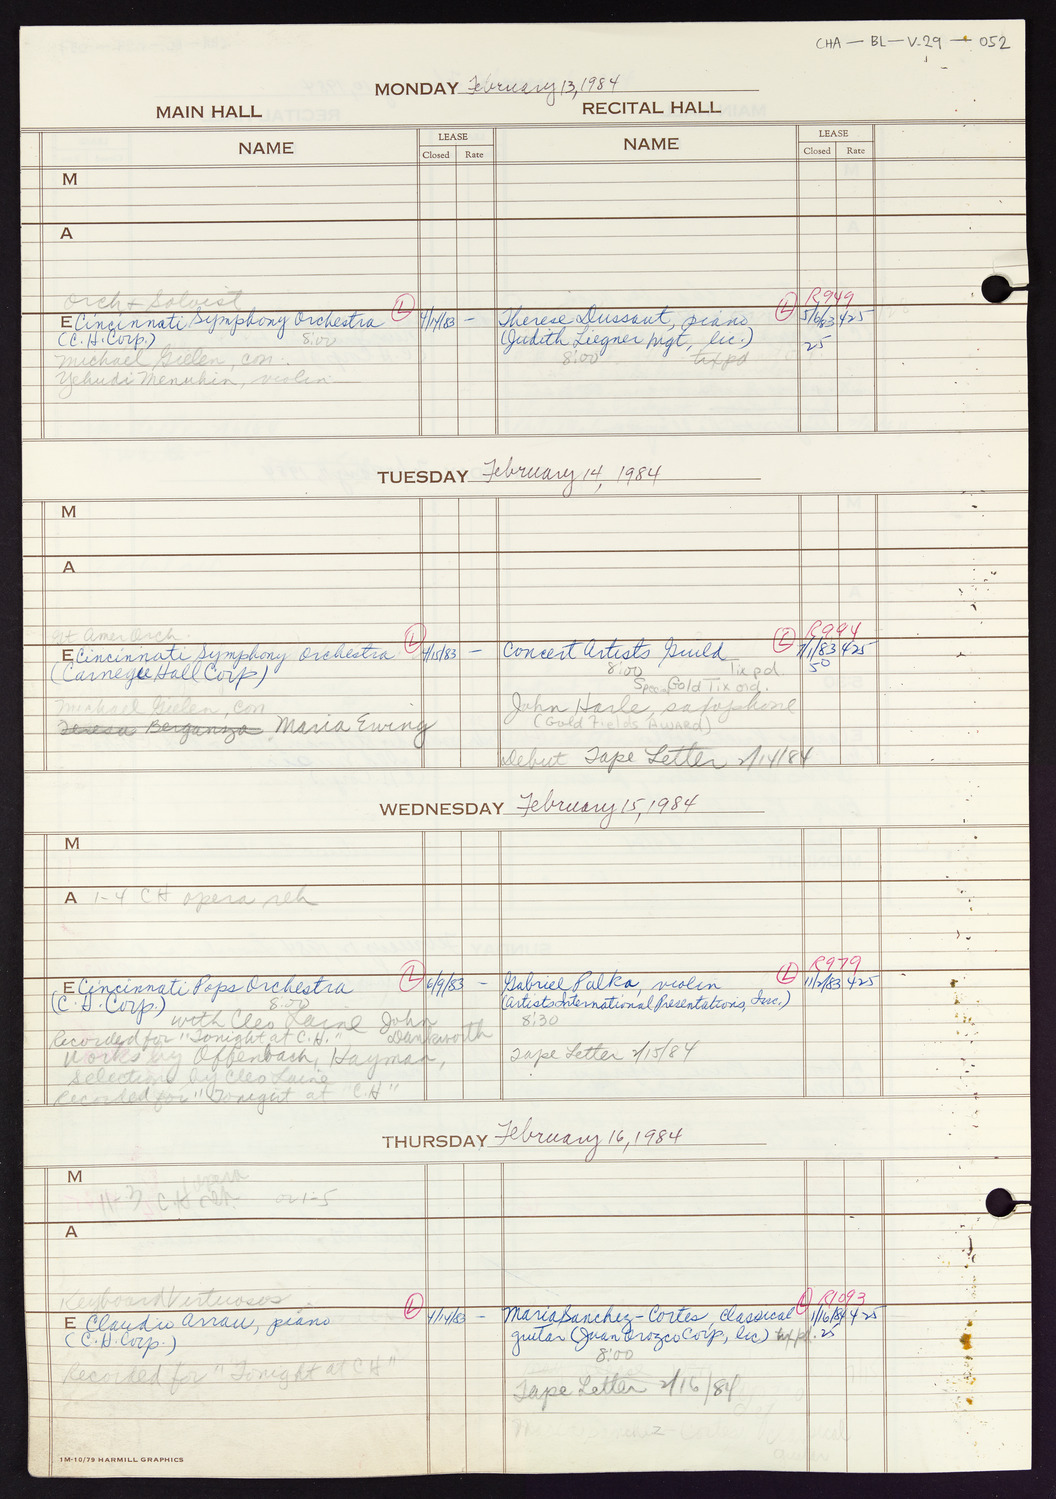 CHA — BL — V.29 — 052
MONDAY February 13, 1984
MAIN HALL
RECITAL HALL
NAME
LEASE
Closed Rate
NAME
LEASE
Closed Rate
M
A
Orch + Soloist
E Cincinnati Symphony Orchestra (L) 4/14/83 —
(C.H. Corp.) 8:00
Michael Gielen, con.
Yehudi Menuhin, violin
R949
Therese Dussaut, piano (L) 5/6/83 425
(Judith Liegner Mgt, Inc.) 25
8:00 tix pd
TUESDAY February 14, 1984
M
A
Gt Amer Orch.
E Cincinnati Symphony Orchestra (L) 4/15/83 —
(Carnegie Hall Corp)
Michael Gielen, con
Teresa Berganza Maria Ewing
R994
Concert Artists Guild (L) 7/1/83 425
8:00 Tix pd. 50
Special Gold Tix ord.
John Harle, saxophone
(Gold Fields Award)
Debut Tape Letter 2/14/84
WEDNESDAY February 15, 1984
M
A 1-4 CH opera reh
E Cincinnati Pops Orchestra (L) 6/9/83 —
(C.H. Corp.) 8:00
with Cleo Laine John Dankworth
Recorded for "Tonight at C.H."
Works by Offenbach, Hayman,
Selections by Cleo Laine
Recorded for "Tonight at "C.H"
R979
Gabriel Pulka, violin (L) 11/2/83 425
(Artists International Presentations, Inc.)
8:30
Tape Letter 2/15/84
THURSDAY February 16, 1984
M
11-3 CH reh. or 1-5
A
Keyboard Virtuosos
E Claudio Arrau, piano (L) 1/14/83 —
(C.H. Corp.)
Recorded for "Tonight at CH"
R1093
Maria Sanchez-Cortes, classical (L) 1/16/84 425
guitar (Juan Orozco Corp, Inc) tix pd. 25
8:00
Tape Letter 2/16/84
1M-10/79 HARMILL GRAPHICS